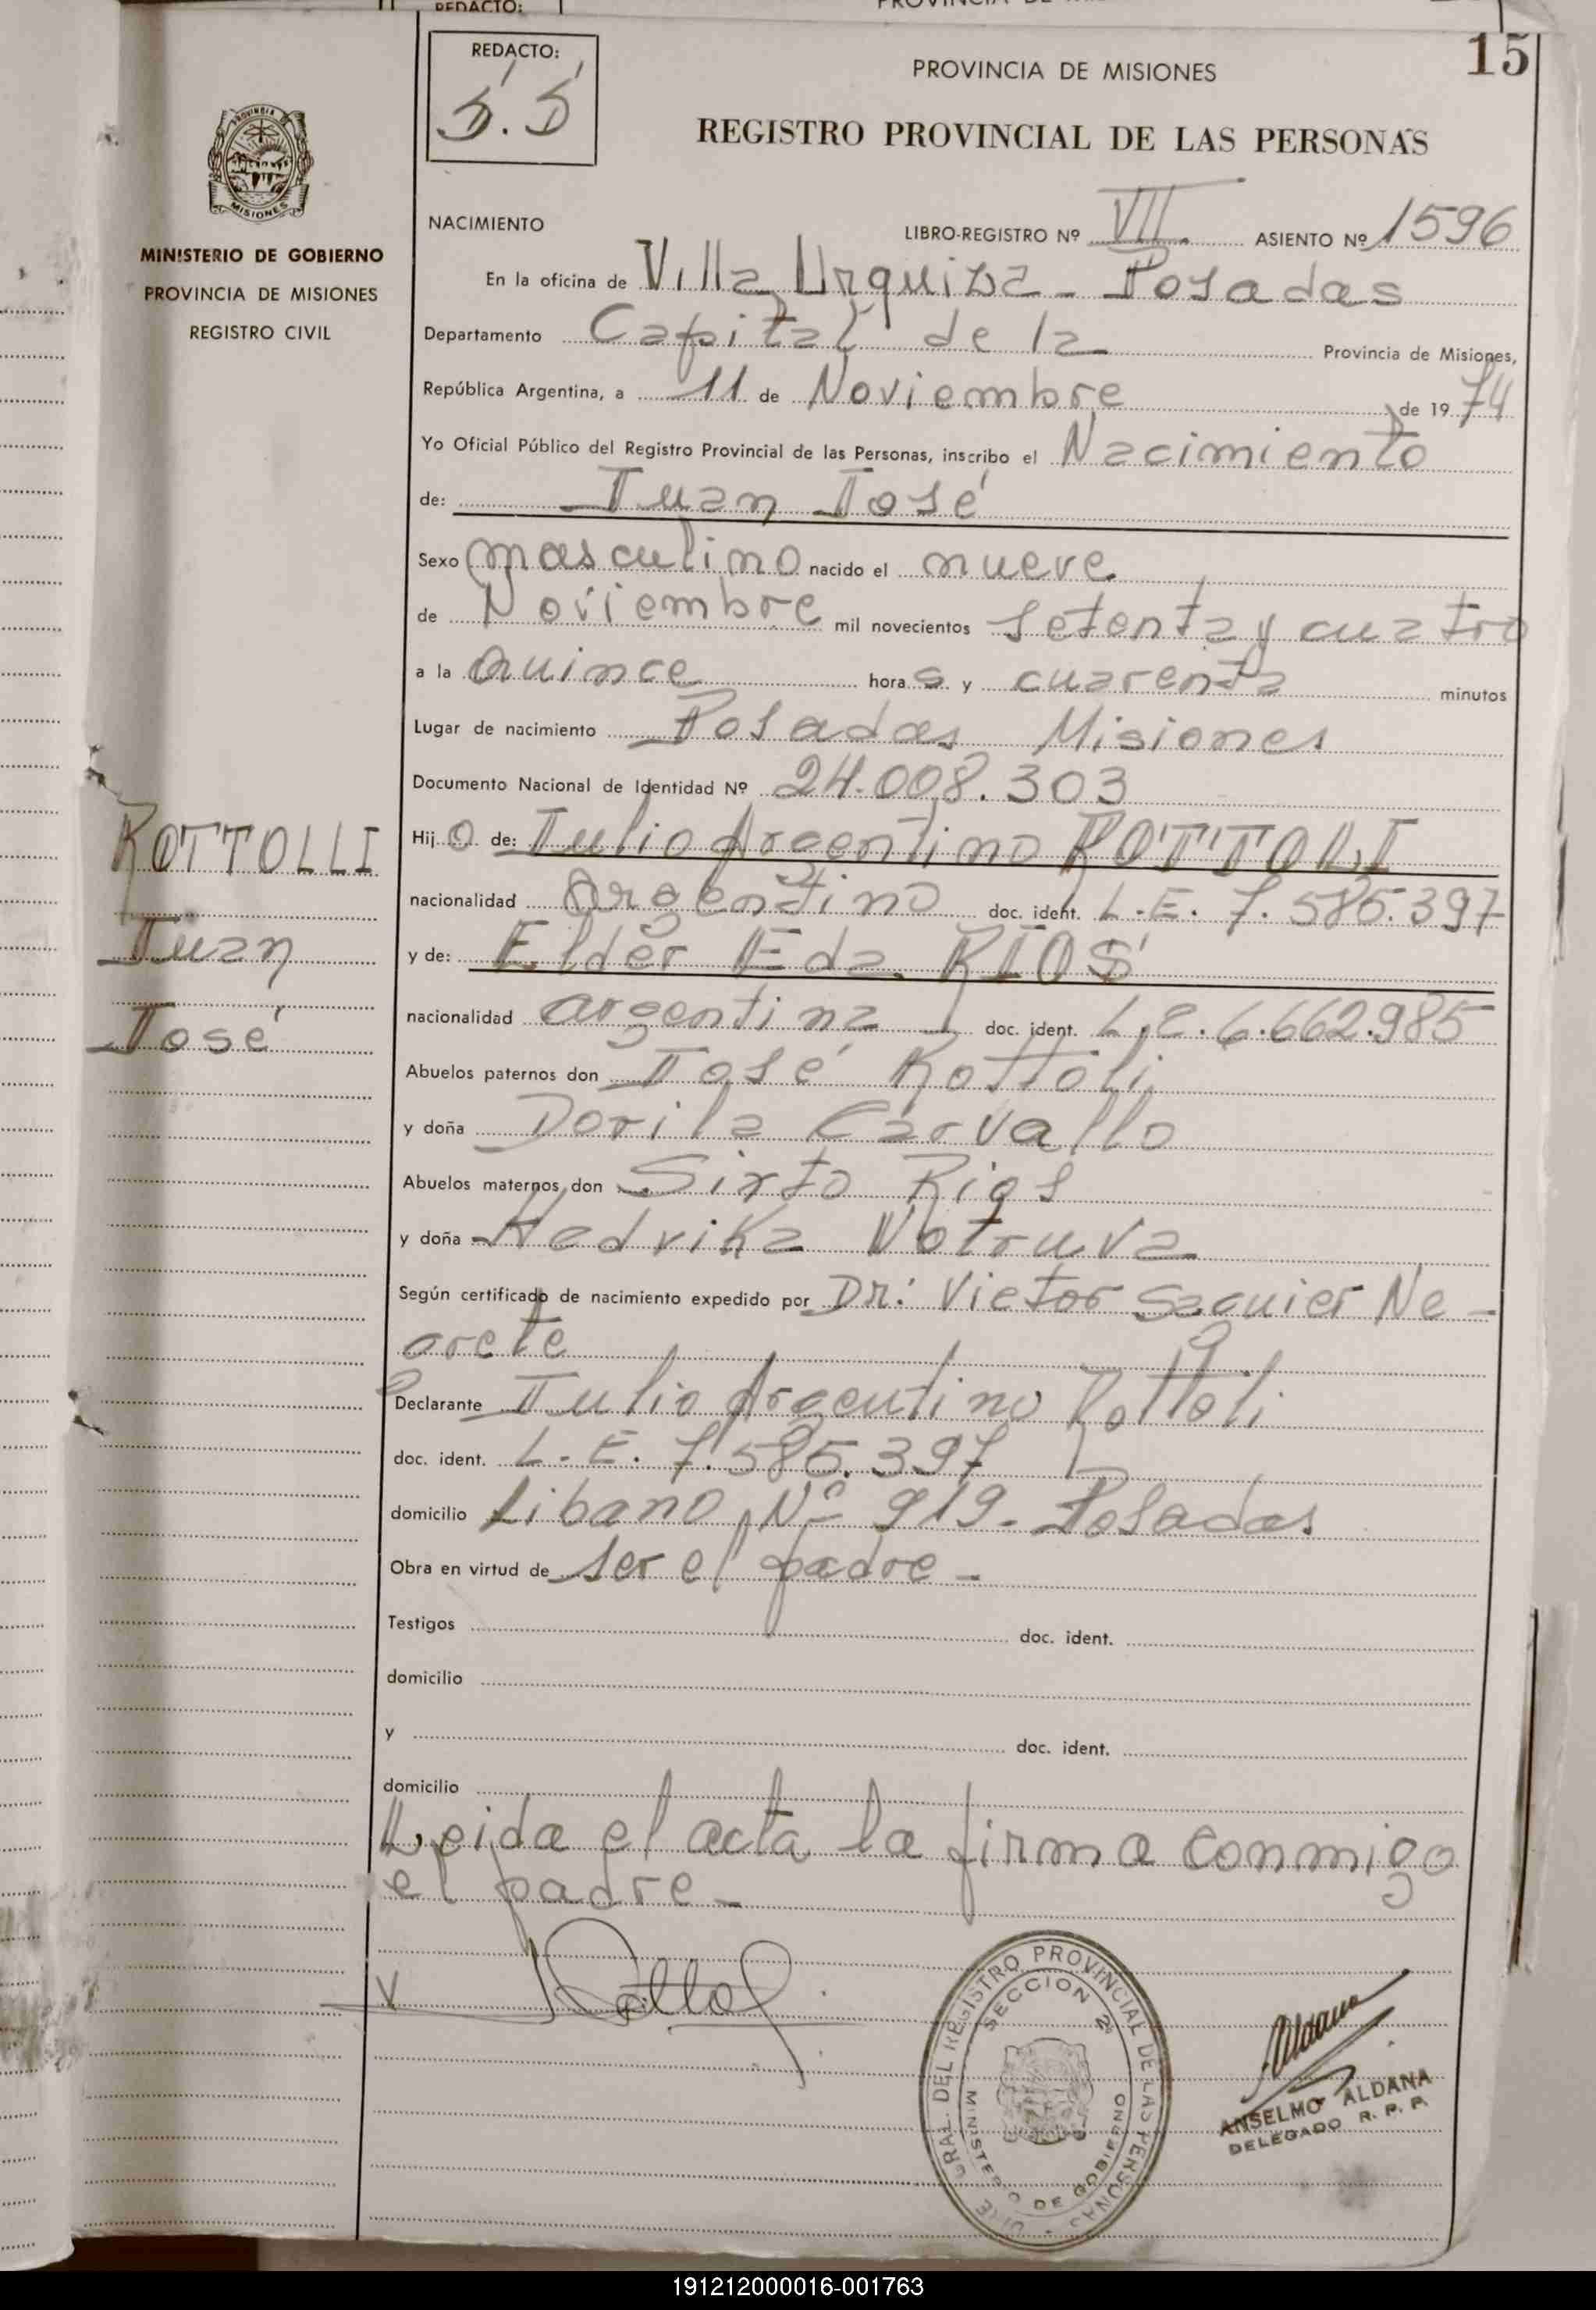 REDACTO:
PROVINCIA DE MISIONES
15
REGISTRO PROVINCIAL DE LAS PERSONAS
MISIONES
MINISTERIO DE GOBIERNO
PROVINCIA DE MISIONES
REGISTRO CIVIL
NACIMIENTO LIBRO-REGISTRO Nº VII ASIENTO Nº 1596
En la oficina de Villa Urquiza - Posadas
Departamento Capital de la Provincia de Misiones,
República Argentina, a 11 de Noviembre de 1974
Yo Oficial Público del Registro Provincial de las Personas, inscribo el Nacimiento
de: Juan José
Sexo masculino nacido el nueve
de Noviembre mil novecientos setenta y cuatro
a la quince horas y cuarenta minutos
Lugar de nacimiento Posadas Misiones
Documento Nacional de Identidad Nº 24.008.303
Hijo de: Julio Argentino ROTTOLI
nacionalidad Argentino doc. ident. L.E. 7.585.397
y de: Elder Eda RIOS
nacionalidad argentina doc. ident. L.C. 6.662.985
Abuelos paternos don José Rottoli
y doña Dorila Carvallo
Abuelos maternos don Sixto Rios
y doña Hedvika Votruva
Según certificado de nacimiento expedido por Dr: Victor Saguier Ne-
grete
Declarante Julio Argentino Rottoli
doc. ident. L.E. 7.585.397
domicilio Libano Nº 919 - Posadas
Obra en virtud de ser el padre -
Testigos doc. ident.
domicilio
y doc. ident.
domicilio
Leida el acta la firma conmigo
el padre -
ROTTOLLI
Juan
José
DIRE. GRAL. DEL REGISTRO PROVINCIAL DE LAS PERSONAS
SECCION 2ª
MINISTERIO DE GOBIERNO
Aldana
ANSELMO ALDANA
DELEGADO R. P. P.
191212000016-001763